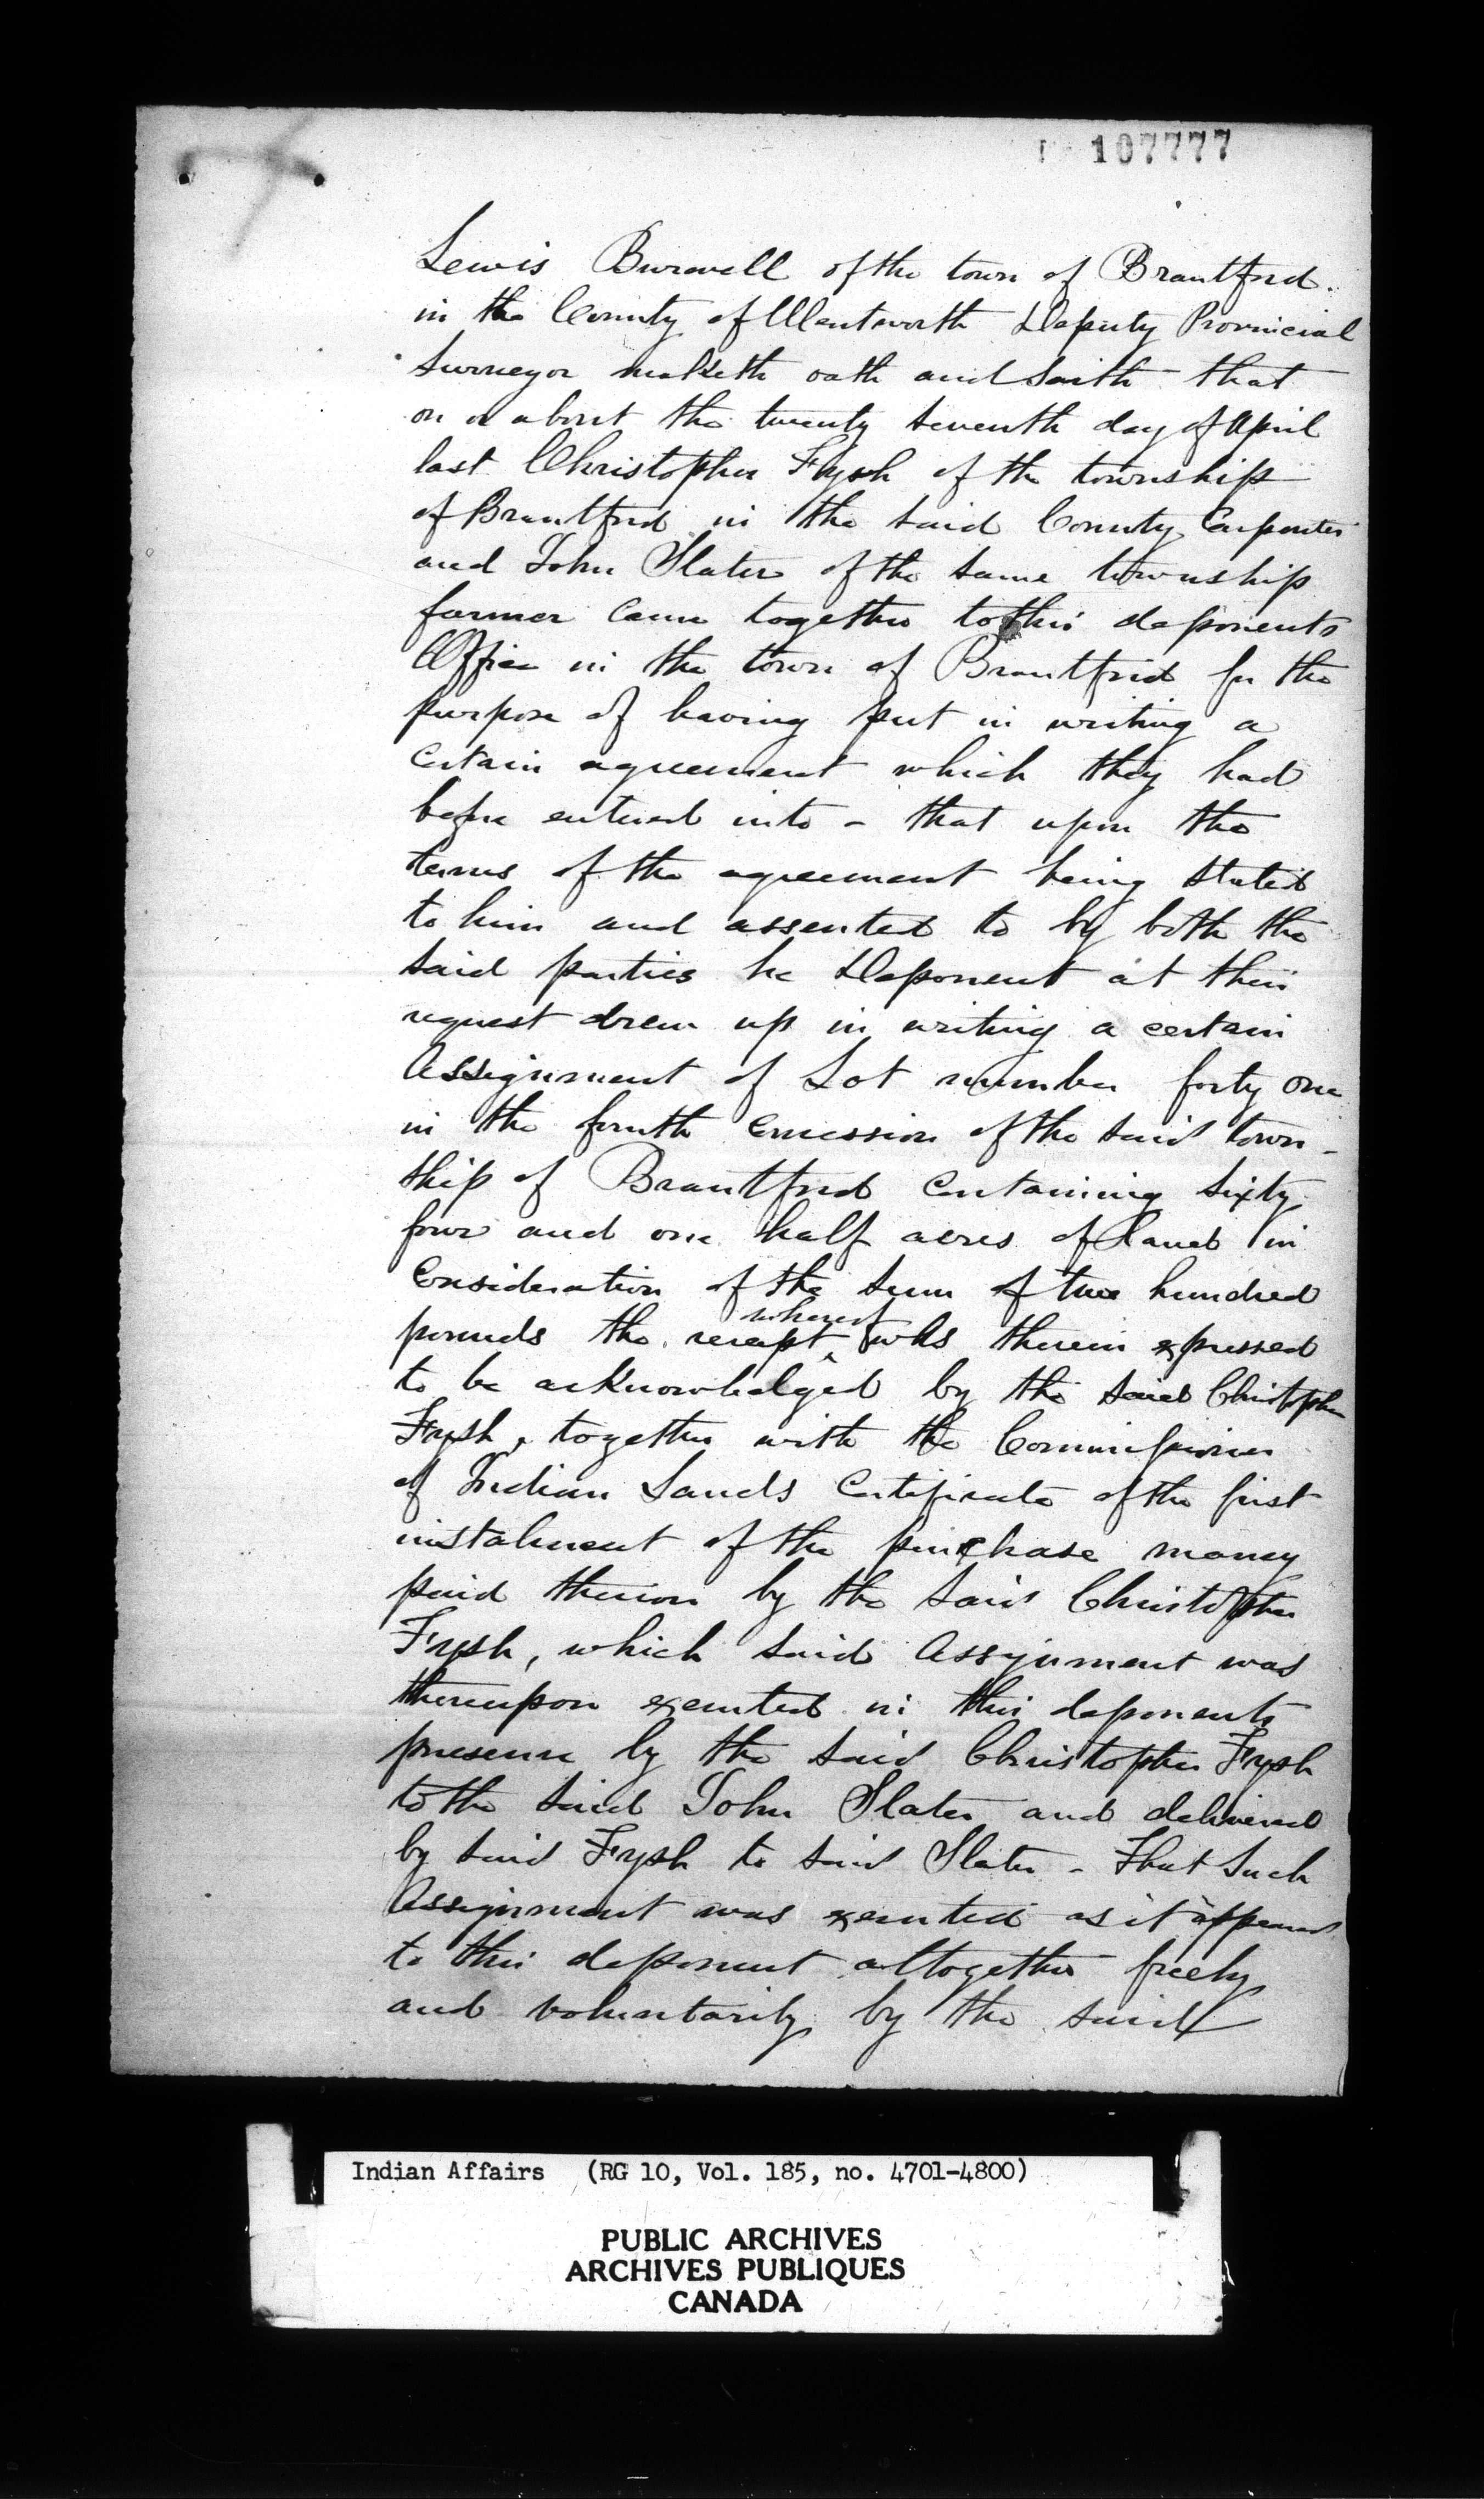 107777
Lewis Burwell of the town of Brantford.
in the County of Wentworth Deputy Provincial
Surveyor maketh oath and saith that
on or about the twenty seventh day of April
last Christopher Fysh of the township
of Brantford in the said County Carpenter
and John Slater of the same township
farmer came together to this deponents
Office in the town of Brantford for the
purpose of having put in writing a
certain agreement which they had
before entered into - that upon the
terms of the agreement being stated
to him and assented to by both the
said parties he Deponent at their
request drew up in writing a certain
Assignment of Lot number forty one
in the fourth concession of the said town-
ship of Brantford containing sixty
four and one half acres of land in
Consideration of the sum of two hundred
pounds the receipt whereof was therein expressed
to be acknowledged by the said Christopher
Fysh, together with the Commissioner
of Indian Lands Certificate of the first
instalment of the purchase money
paid thereon by the said Christopher
Fysh, which said Assignment was
thereupon executed in this deponents
presence by the said Christopher Fysh
to the said John Slater and delivered
by said Fysh to said Slater - That such
Assignment was executed as it appeared
to this deponent altogether freely
and voluntarily by the said
Indian Affairs (RG 10, Vol. 185, no. 4701-4800)
PUBLIC ARCHIVES
ARCHIVES PUBLIQUES
CANADA